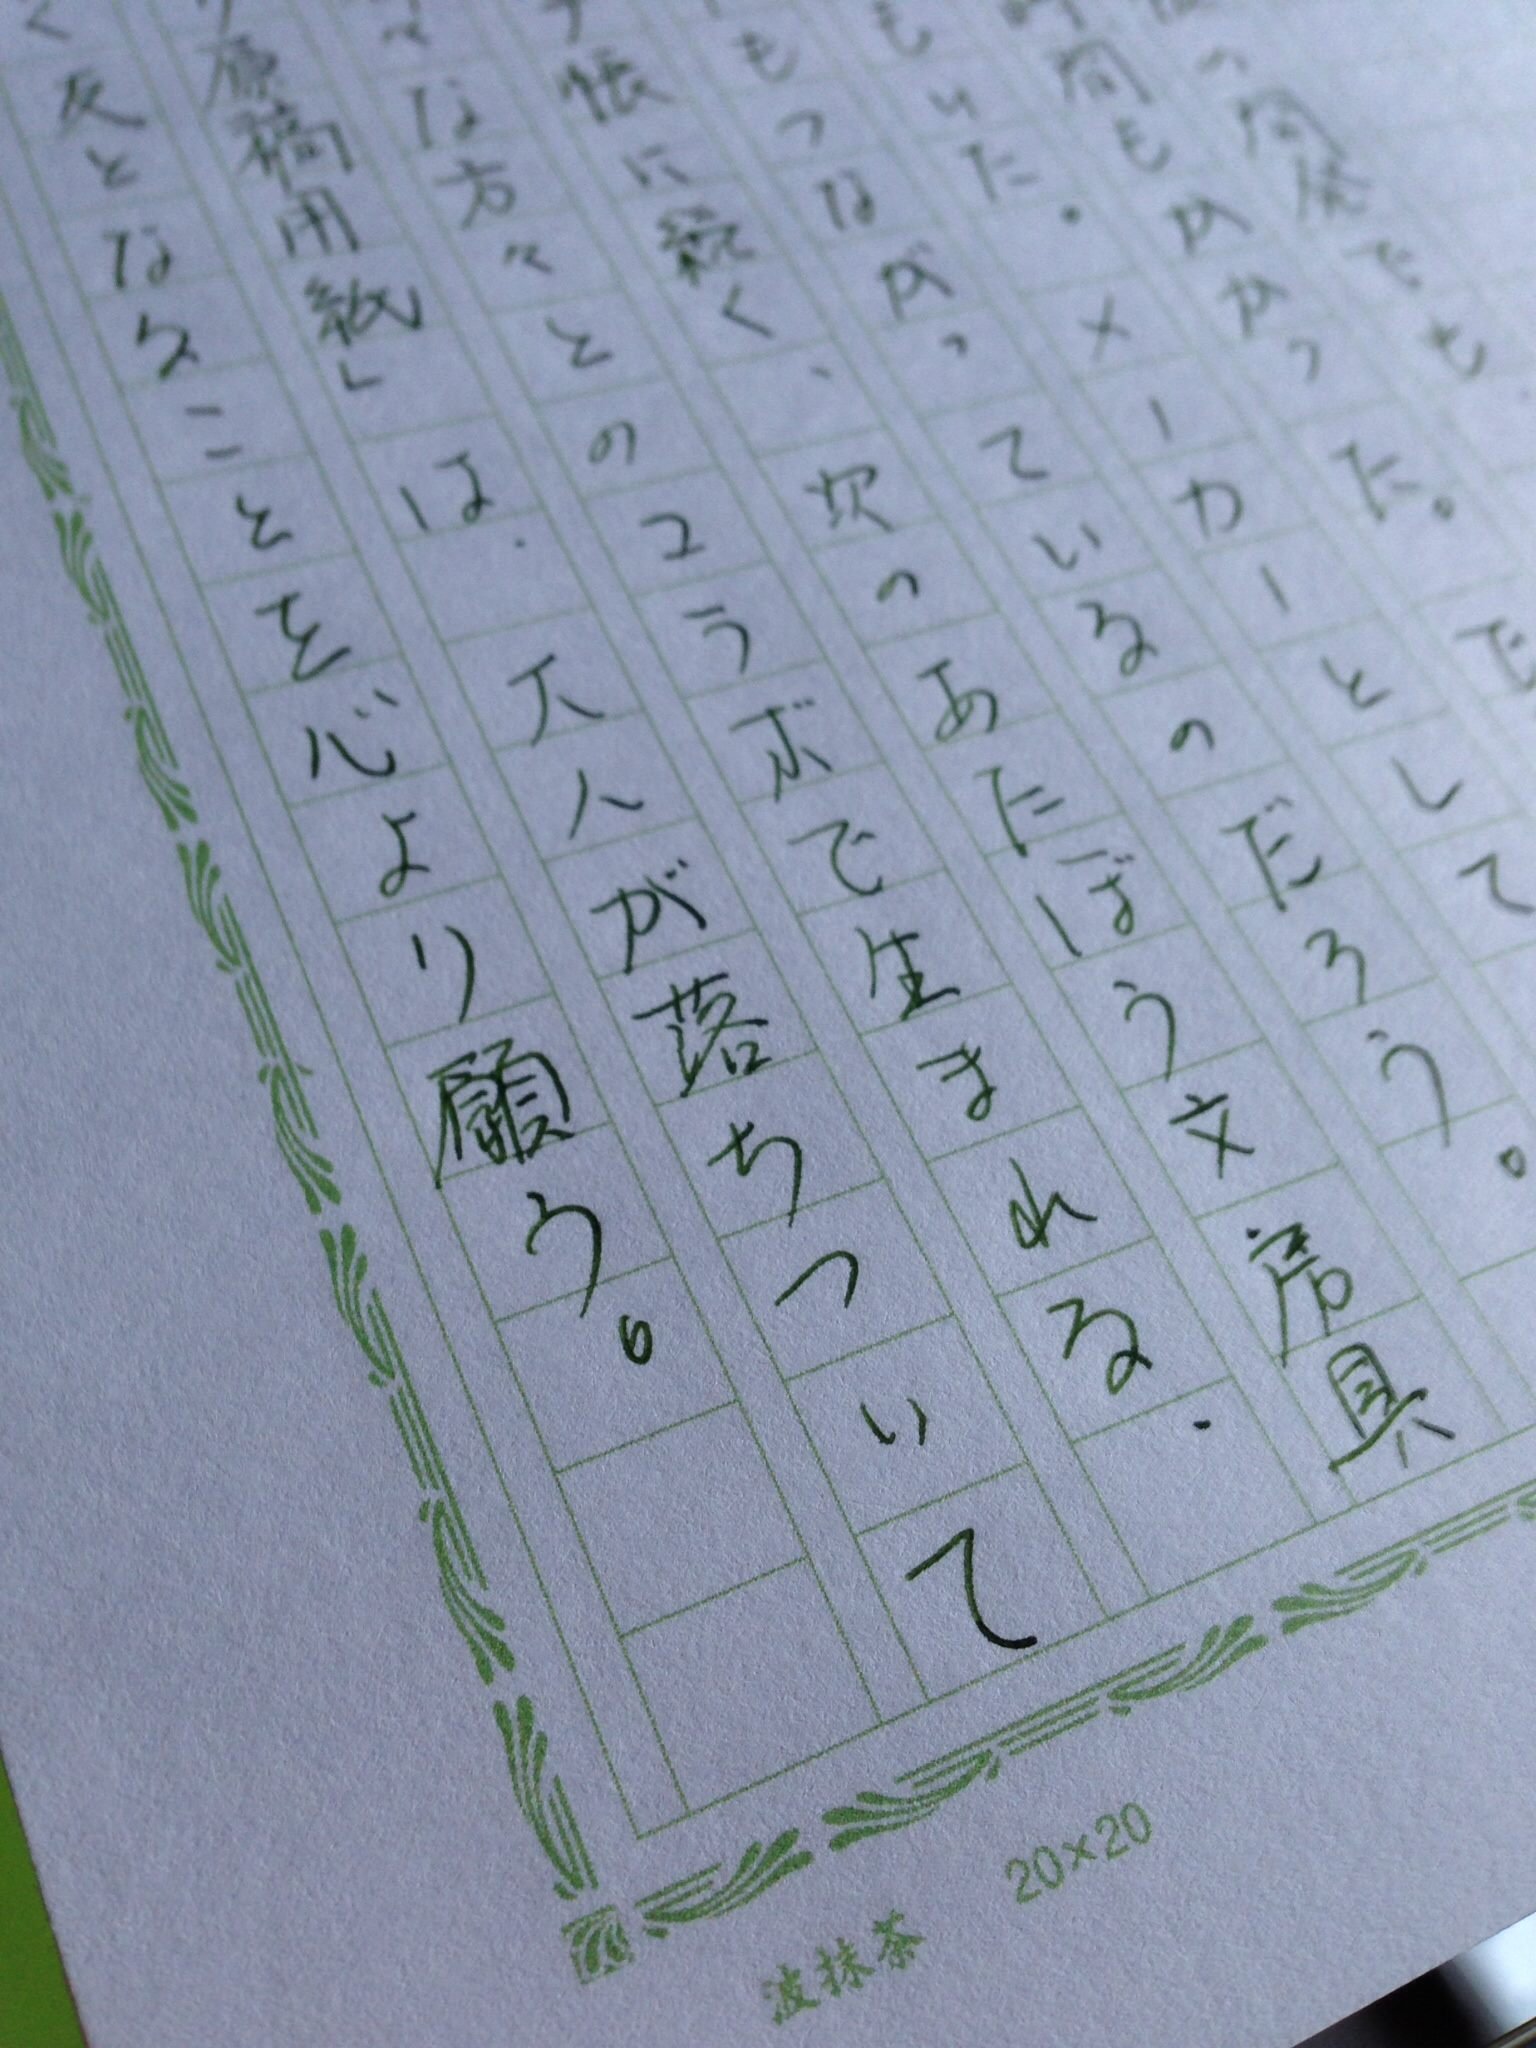 の開発でも、
時間もかかった。だ
もいた。メーカーとして
もつながっているのだろう。
帳に続く、次のあたぼう文房具
々な方々とのコラボで生まれる、
原稿用紙」は、大人が落ちついて
く友となることを心より願う。
20×20
波抹茶